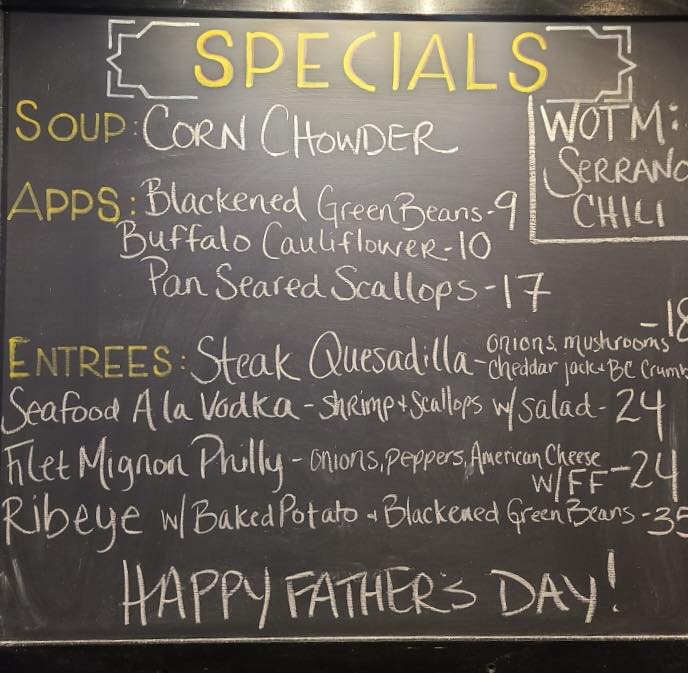 SPECIALS
SOUP: CORN CHOWDER
WOTM:
SERRANO
CHILI
APPS: Blackened Green Beans-9
Buffalo Cauliflower-10
Pan Seared Scallops-17
ENTREES: Steak Quesadilla-onions, mushrooms -18
cheddar jack + BC Crumb
Seafood A la Vodka - shrimp + Scallops w/salad-24
Filet Mignon Philly - onions, peppers, American Cheese
w/FF-24
Ribeye w/ Baked Potato + Blackened Green Beans -35
HAPPY FATHER'S DAY!